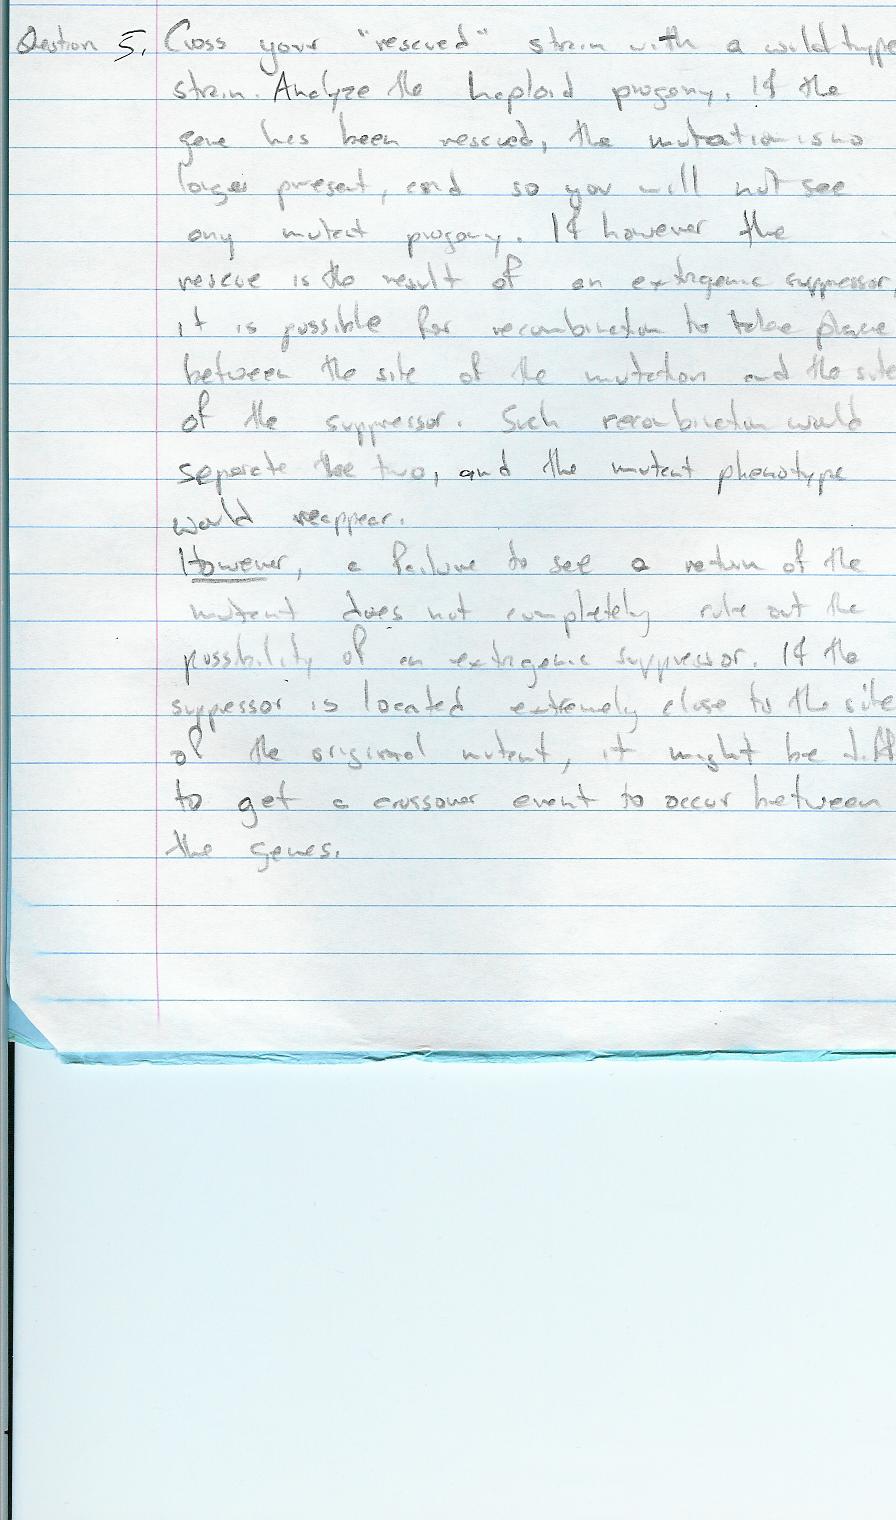 Question 5. Cross your "rescued" strain with a wild type
strain. Analyze the haploid progeny. If the
gene has been rescued, the mutation is no
longer present, and so you will not see
any mutant progeny. If however the
rescue is the result of an extragenic suppressor,
it is possible for recombination to take place
between the site of the mutation and the site
of the suppressor. Such recombination would
separate the two, and the mutant phenotype
would reappear.
However, a failure to see a return of the
mutant does not completely rule out the
possibility of an extragenic suppressor. If the
suppressor is located extremely close to the site
of the original mutant, it might be diff
to get a crossover event to occur between
the genes.